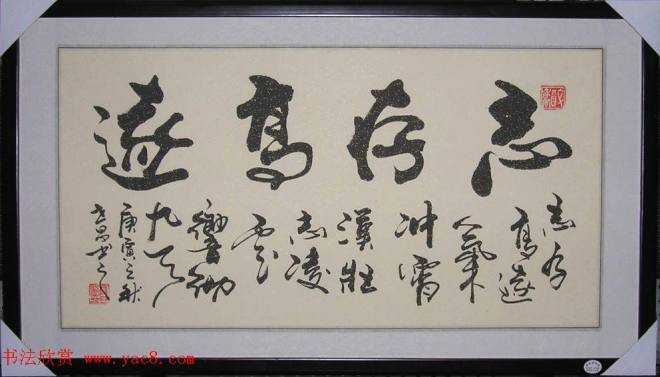 志存高遠
志存
高遠
氣
冲霄
漢壯
志凌
雲
響徹
九天
庚寅之秋
书法欣赏 www.yac8.com